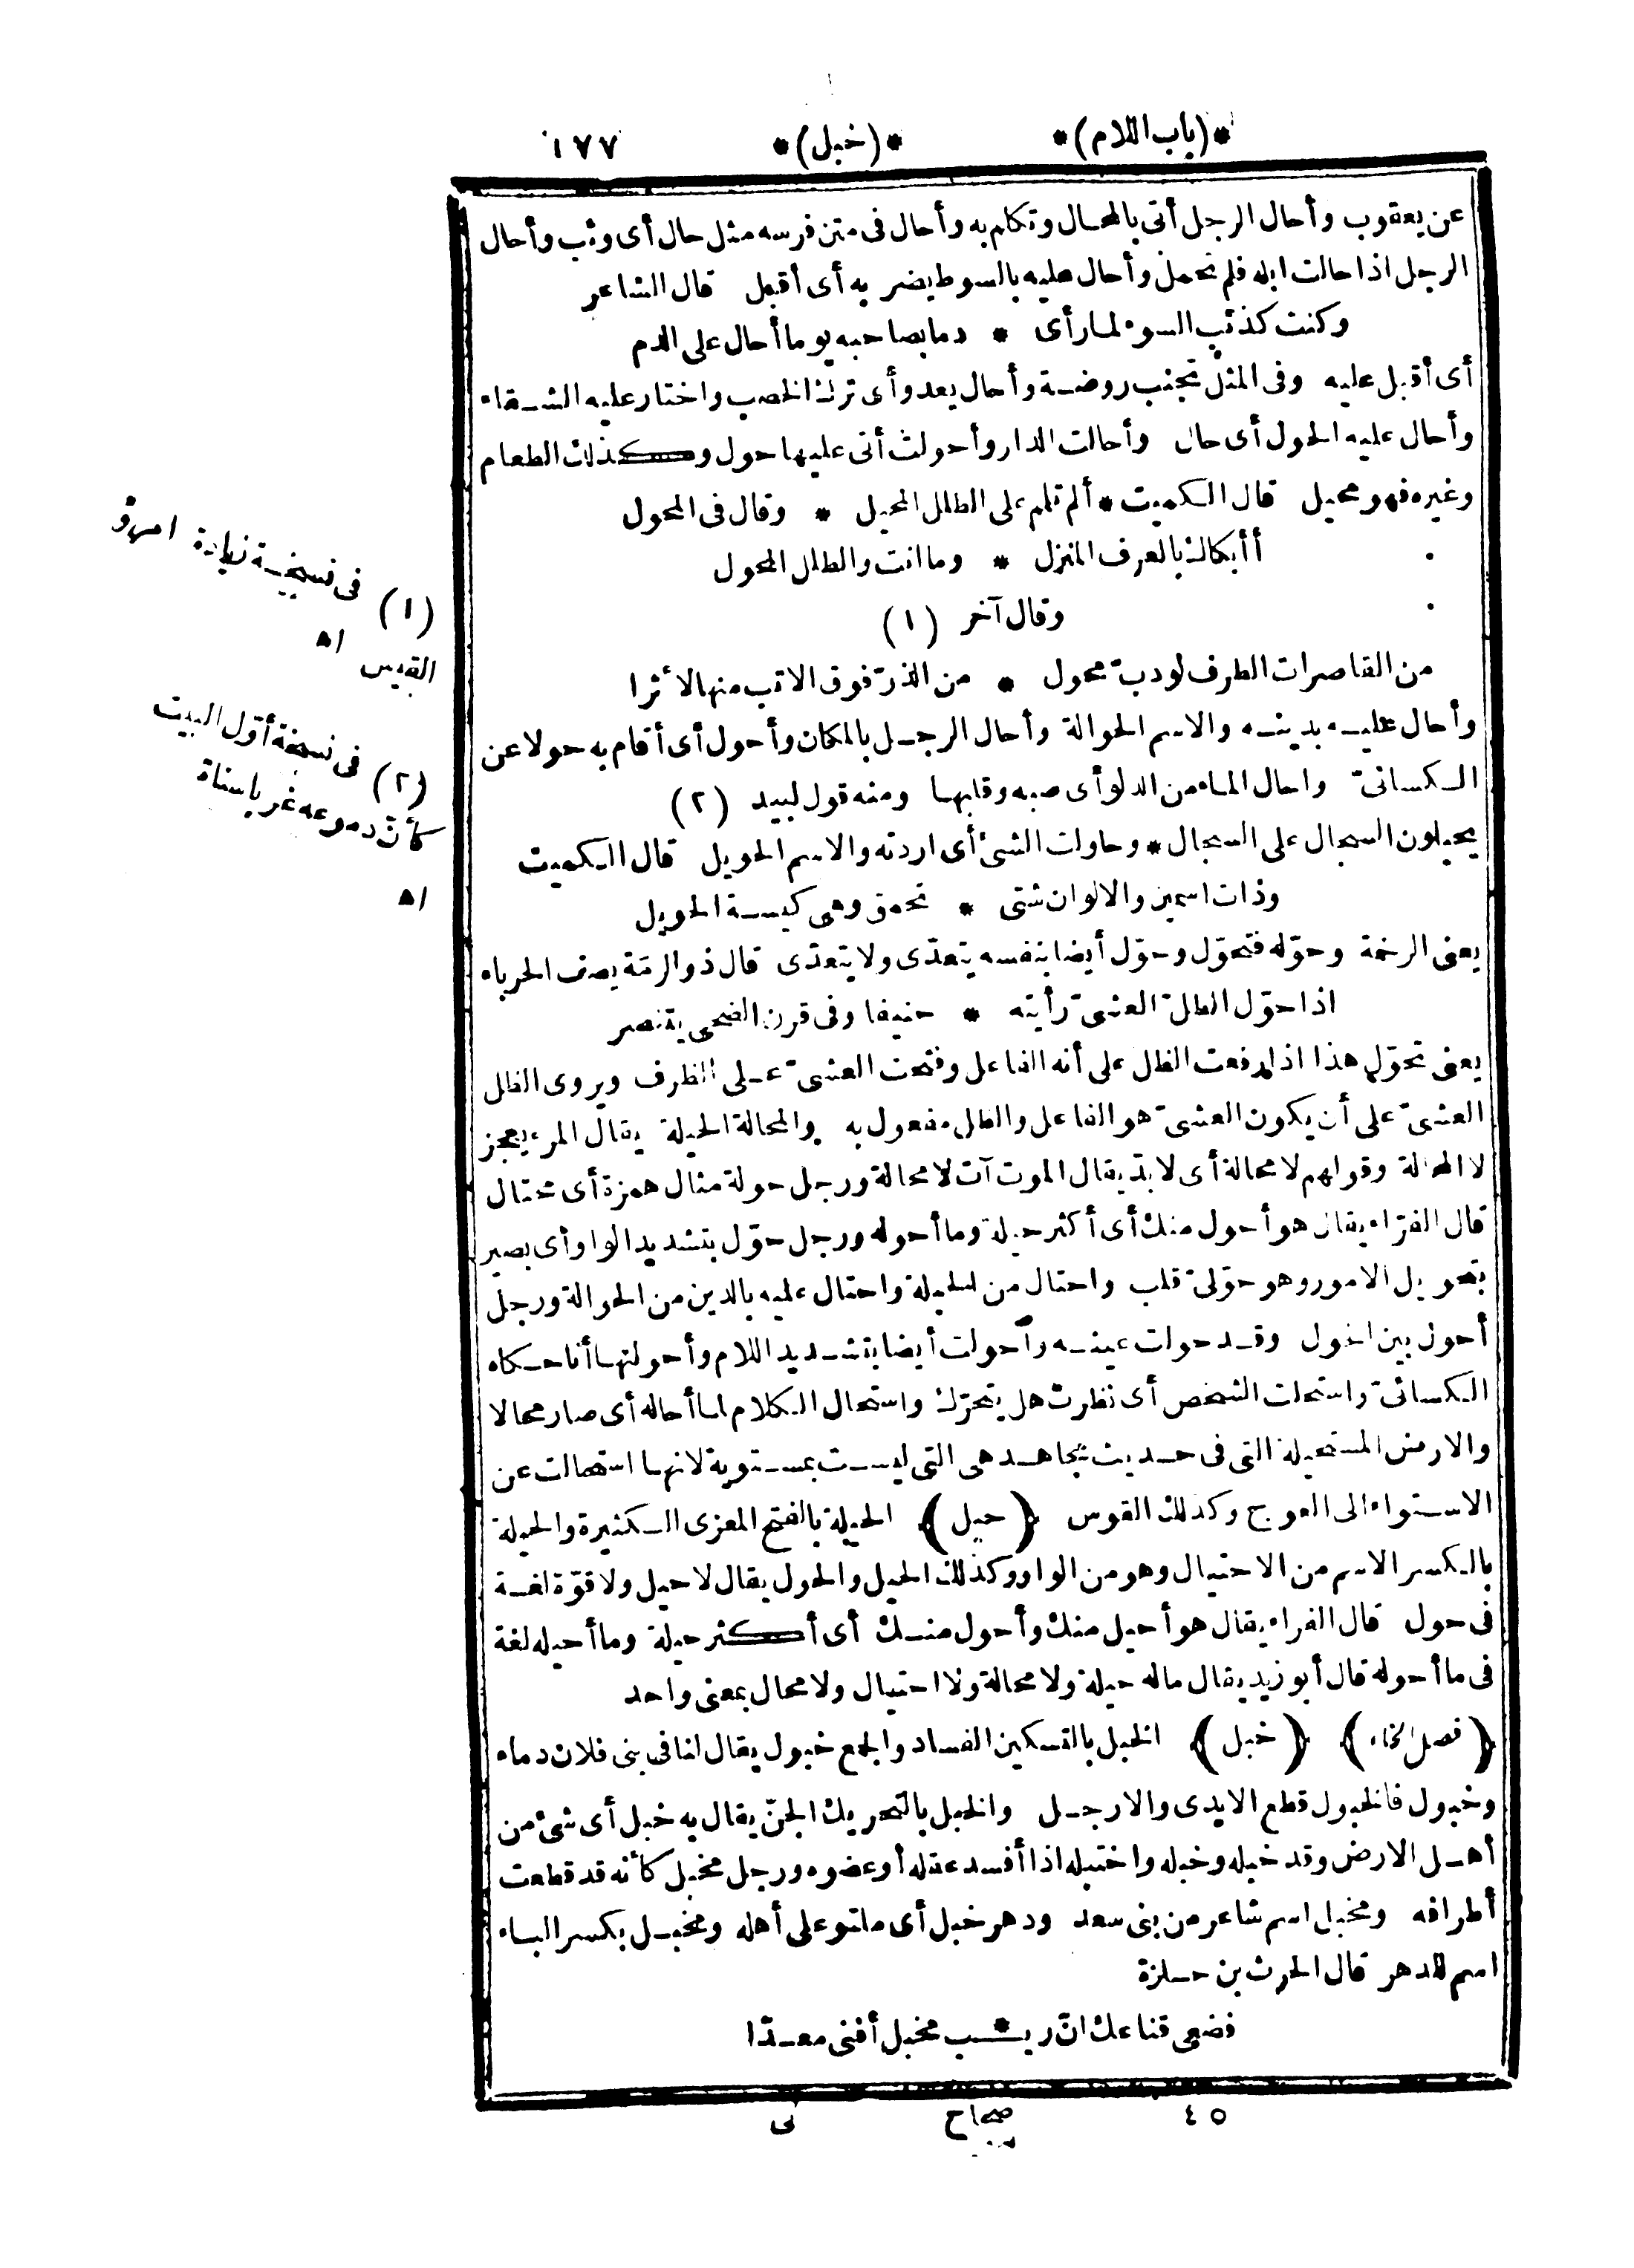 *(باب اللام)* *(خبل)* ١٧٧
عن يعقوب وأحال الرجل أتى بالمحال وتكلم به وأحال فى متن فرسه مثل حال أى وثب وأحال
الرجل اذا حالت ابله فلم تحمل وأحال عليه بالسوط يضربه أى أقبل قال الشاعر
وكنت كذئب السوء لما رأى * دما بصاحبه يوما أحال على الدم
أى أقبل عليه وفى المثل تجنب روضة وأحال يعدو أى ترك الخصب واختار عليه الشقاء
وأحال عليه الحول أى حال وأحالت الدار وأحولت أتى عليها حول وكذلك الطعام
وغيره فهو محيل قال الكميت * ألم تلم على الطلل المحيل * وقال فى المحول
أأبكاك بالعرف المنزل * وما انت والطلل المحول
وقال آخر (١)
من القاصرات الطرف لو دبّ محول * من الذرّ فوق الاتب منها لأثرا
وأحال عليه بدينه والاسم الحوالة وأحال الرجل بالمكان وأحول أى أقام به حولا عن
الكسائىّ واحال الماء من الدلو أى صبه وقلبها ومنه قول لبيد (٢)
يحيلون السجال على السجال * وحاولت الشئ أى اردته والاسم الحويل قال الكميت
وذات اسمين والالوان شتى * تحمق وهى كيسة الحويل
يعنى الرخمة وحوّله فتحوّل وحوّل أيضا بنفسه يتعدّى ولا يتعدّى قال ذو الرمّة يصف الحرباء
اذا حوّل الظلّ العشىّ رأيته * حنيفا وفى قرن الضحى يتنصر
يعنى تحوّل هذا اذا رفعت الظل على أنه الفاعل وفتحت العشىّ على الظرف ويروى الظل
العشىّ على أن يكون العشىّ هو الفاعل والظل مفعول به والمحالة الحيلة يقال المرء يعجز
لا المحالة وقولهم لا محالة أى لا بدّ يقال الموت آت لا محالة ورجل حولة مثال همزة أى محتال
قال الفرّاء يقال هو أحول منك أى أكثر حيلة وما أحوله ورجل حوّل بتشديد الواو أى بصير
بتحويل الامور وهو حوّلىّ قلب واحتال من الحيلة واحتال عليه بالدين من الحوالة ورجل
أحول بين الحول وقد حولت عينه واحولت أيضا بتشديد اللام وأحولتها أنا حكاه
الكسائىّ واستحلت الشخص أى نظرت هل يتحرّك واستحال الكلام لما أحاله أى صار محالا
والارض المستحيلة التى فى حديث مجاهد هى التى ليست بمستوية لانها استحالت عن
الاستواء الى العوج وكذلك القوس ﴿حيل﴾ الحيلة بالفتح المعزى الكثيرة والحيلة
بالكسر الاسم من الاحتيال وهو من الواو وكذلك الحيل والحول يقال لا حيل ولا قوّة لغة
فى حول قال الفراء يقال هو أحيل منك وأحول منك أى أكثر حيلة وما أحيله لغة
فى ما أحوله قال أبو زيد يقال ماله حيلة ولا محالة ولا احتيال ولا محال بمعنى واحد
﴿فصل الخاء﴾ ﴿خبل﴾ الخبل بالتسكين الفساد والجمع خبول يقال لنا فى بنى فلان دماء
وخبول فالخبول قطع الايدى والارجل والخبل بالتحريك الجنّ يقال به خبل أى شئ من
أهل الارض وقد خبله وخبله واختبله اذا أفسد عقله أو عضوه ورجل مخبل كأنه قد قطعت
أطرافه ومخبل اسم شاعر من بنى سعد ودهر خبل أى ملتو على أهله ومخبل بكسر الباء
اسم للدهر قال الحرث بن حلزة
فضعى قناعك انّ ريـ * ـب مخبل أفنى معدّا
٤٥ صحاح نى
(١) فى نسخة زيادة امرؤ
القيس اه
(٢) فى نسخة أوّل البيت
كأنّ دموعه غربا سناة
اه